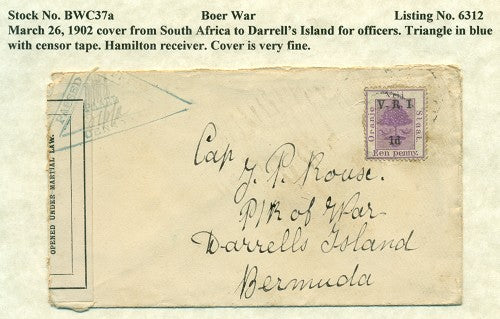 Stock No. BWC37a Boer War Listing No. 6312
March 26, 1902 cover from South Africa to Darrell's Island for officers. Triangle in blue
with censor tape. Hamilton receiver. Cover is very fine.
PASSED
OPENED UNDER MARTIAL LAW.
V. R. I
1d
Oranje
Staat
Een penny.
Cap
J. P. Rouse.
P/R of War
Darrells Island
Bermuda